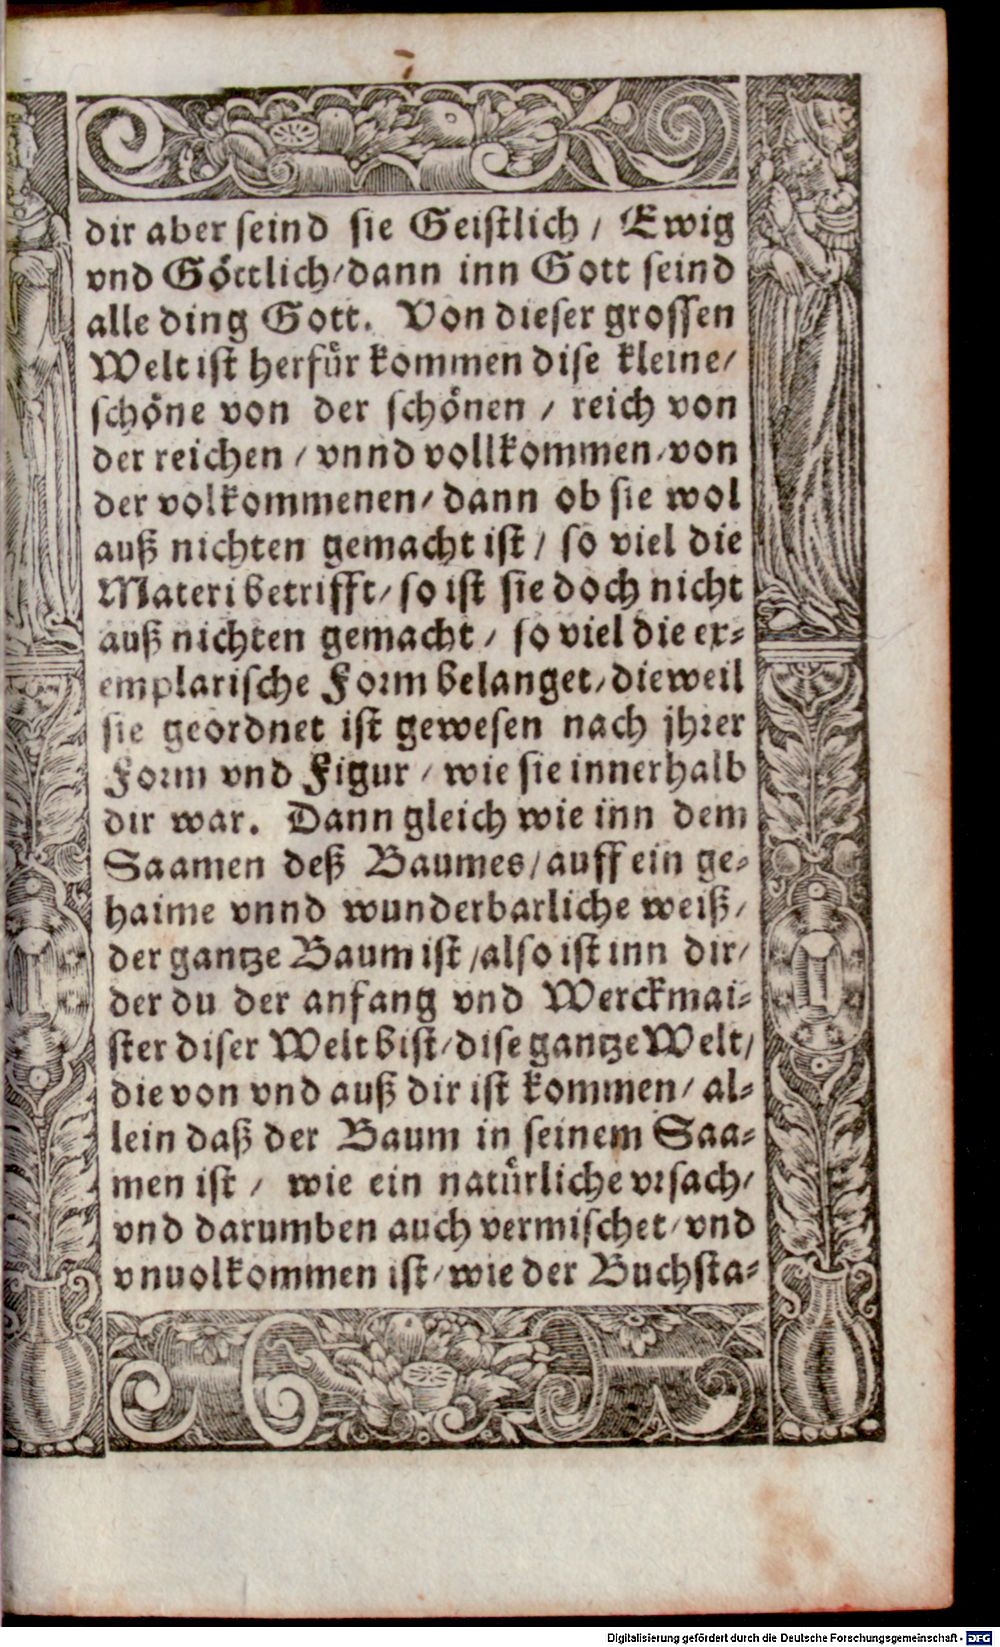 dir aber seind sie Geistlich / Ewig
vnd Göttlich/dann inn Gott seind
alle ding Gott. Von dieser grossen
Welt ist herfür kommen dise kleine/
schöne von der schönen / reich von
der reichen / vnnd vollkommen/von
der volkommenen/ dann ob sie wol
auß nichten gemacht ist / so viel die
Materi betrifft/ so ist sie doch nicht
auß nichten gemacht / so viel die ex-
emplarische Form belanget/dieweil
sie geordnet ist gewesen nach jhrer
Form vnd Figur / wie sie innerhalb
dir war. Dann gleich wie inn dem
Saamen deß Baumes/auff ein ge-
haime vnnd wunderbarliche weiß/
der gantze Baum ist /also ist inn dir/
der du der anfang vnd Werckmai-
ster diser Welt bist/dise gantze Welt/
die von vnd auß dir ist kommen/ al-
lein daß der Baum in seinem Saa-
men ist / wie ein natürliche vrsach/
vnd darumben auch vermischet/vnd
vnuolkommen ist/wie der Buchsta-
Digitalisierung gefördert durch die Deutsche Forschungsgemeinschaft - DFG